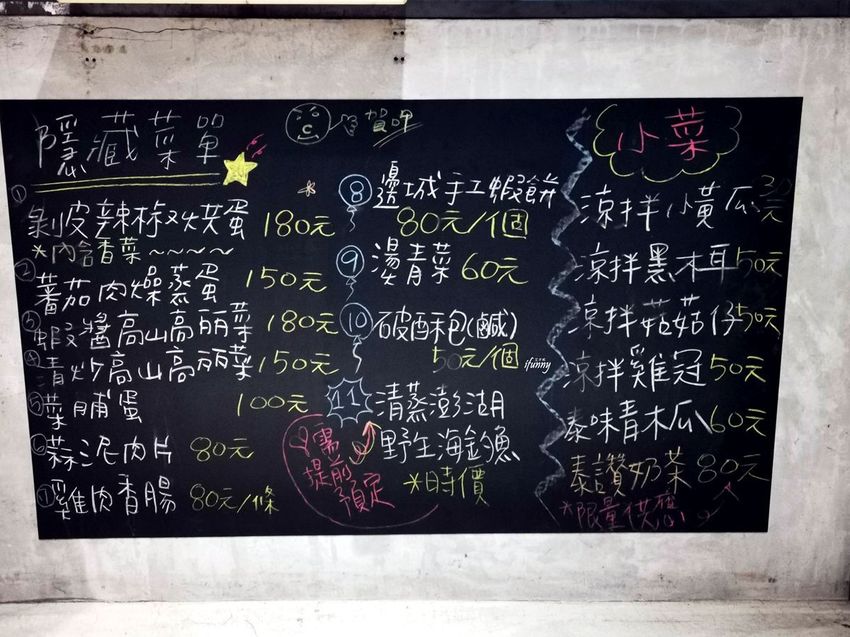 隱藏菜單
賀呷
① 剝皮辣椒烘蛋 180元
*內含香菜~~~~
② 蕃茄肉燥蒸蛋 150元
③ 蝦醬高山高丽菜 180元
④ 清炒高山高丽菜 150元
⑤ 菜脯蛋 100元
⑥ 蒜泥肉片 80元
⑦ 雞肉香腸 80元/條
⑧ 邊城手工蝦餅
80元/個
⑨ 燙青菜 60元
⑩ 破酥包(鹹)
50元/個
11 清蒸澎湖
野生海釣魚
*時價
需
提前
預定
小菜
涼拌小黃瓜 30元
涼拌黑木耳 50元
涼拌菇菇仔 50元
涼拌雞冠 50元
泰味青木瓜 60元
泰讚奶茶 80元
*限量供應
ifunny